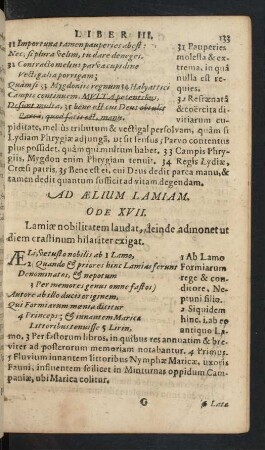 LIBER III.
133
31 Importuna tamen pauperies abest:
Nec, si plura velim, tu dare deneges.
32 Contracto melius parva cupidine
Vectigalia porrigam;
Quàm si 33 Mygdoniis regnum 34 Halyattici
Campis continuem. MULTA petentibus,
Desunt multa. 35 bene est cui Deus obtulit
Parca, quod satis est, manu.
31 Pauperies
molesta &
extrema, in quâ
nulla est re-
quies.
32 Refrænatâ
& coërcita di-
vitiarum cu-
piditate, meliùs tributum & vectigal persolvam, quàm si
Lydiam Phrygiæ adjungā. ut ʃit sensus; Parvo contentus
plus possidet, quàm quimultum habet. 33 Campis Phry-
giis, Mygdon enim Phrygiam tenuit. 34 Regis Lydiæ,
Crœsi patris. 35 Bene est ei, cui Deus dedit parca manu, &
tamen dedit quantum sufficit ad vitam degendam.
AD ÆLIUM LAMIAM.
ODE XVII.
Lamiæ nobilitatem laudat, deinde admonet ut
diem crastinum hilariter exigat.
ÆLi, vetusto nobilis ab 1 Lamo,
2 Quando & priores hinc Lamias ferunt
Denominatos, & nepotum
3 Per memores genus omne fastos)
Autore ab illo ducis originem,
Qui Formiarum mœnia dicitur
4 Princeps; & innantem Maricæ
Littoribus tenuisse 5 Lirin,
1 Ab Lamo
Formiarum
rege & con-
ditore, Ne-
ptuni filio.
2 Siquidem
hinc. Lab eo
antiquo La-
mo, 3 Per fastorum libros, in quibus res annuatim & bre-
viter ad posterorum memoriam notabantur. 4 Primus.
5 Fluvium innantem littoribus Nymphæ Maricæ, uxoris
Fauni, influentem scilicet in Minturnas oppidum Cam-
paniæ, ubi Marica colitur.
G
6 Late